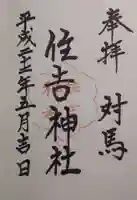 奉拝 対馬
住吉神社
平成二十二年五月吉日